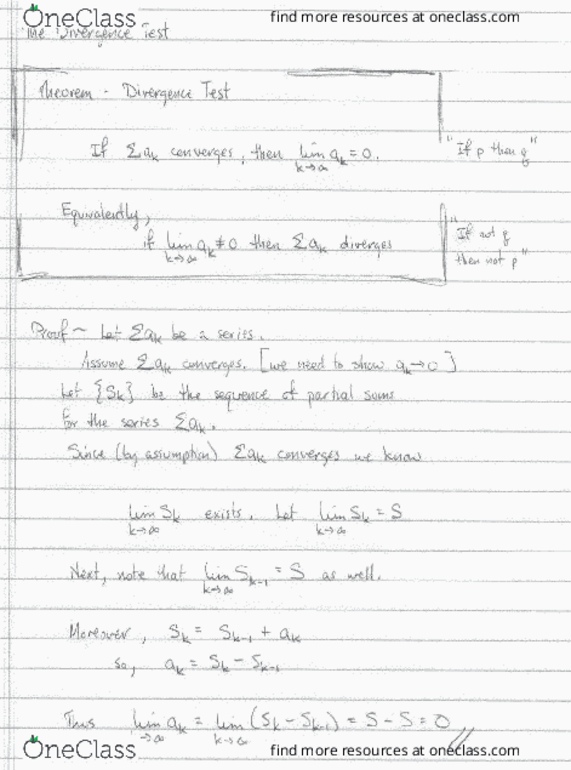 OneClass
find more resources at oneclass.com
The Divergence Test
Theorem - Divergence Test
If Σaₖ converges, then lim aₖ = 0.
k→∞
"If p then q"
Equivalently,
if lim aₖ ≠ 0 then Σaₖ diverges
k→∞
"If not q
then not p"
Proof ~ Let Σaₖ be a series.
Assume Σaₖ converges. [we need to show aₖ→0]
Let {Sₖ} be the sequence of partial sums
for the series Σaₖ.
Since (by assumption) Σaₖ converges we know
lim Sₖ exists. Let lim Sₖ = S
k→∞ k→∞
Next, note that lim Sₖ₋₁ = S as well.
k→∞
Moreover, Sₖ = Sₖ₋₁ + aₖ
so, aₖ = Sₖ - Sₖ₋₁
Thus lim aₖ = lim (Sₖ - Sₖ₋₁) = S - S = 0 //
→∞ k→∞
OneClass
find more resources at oneclass.com